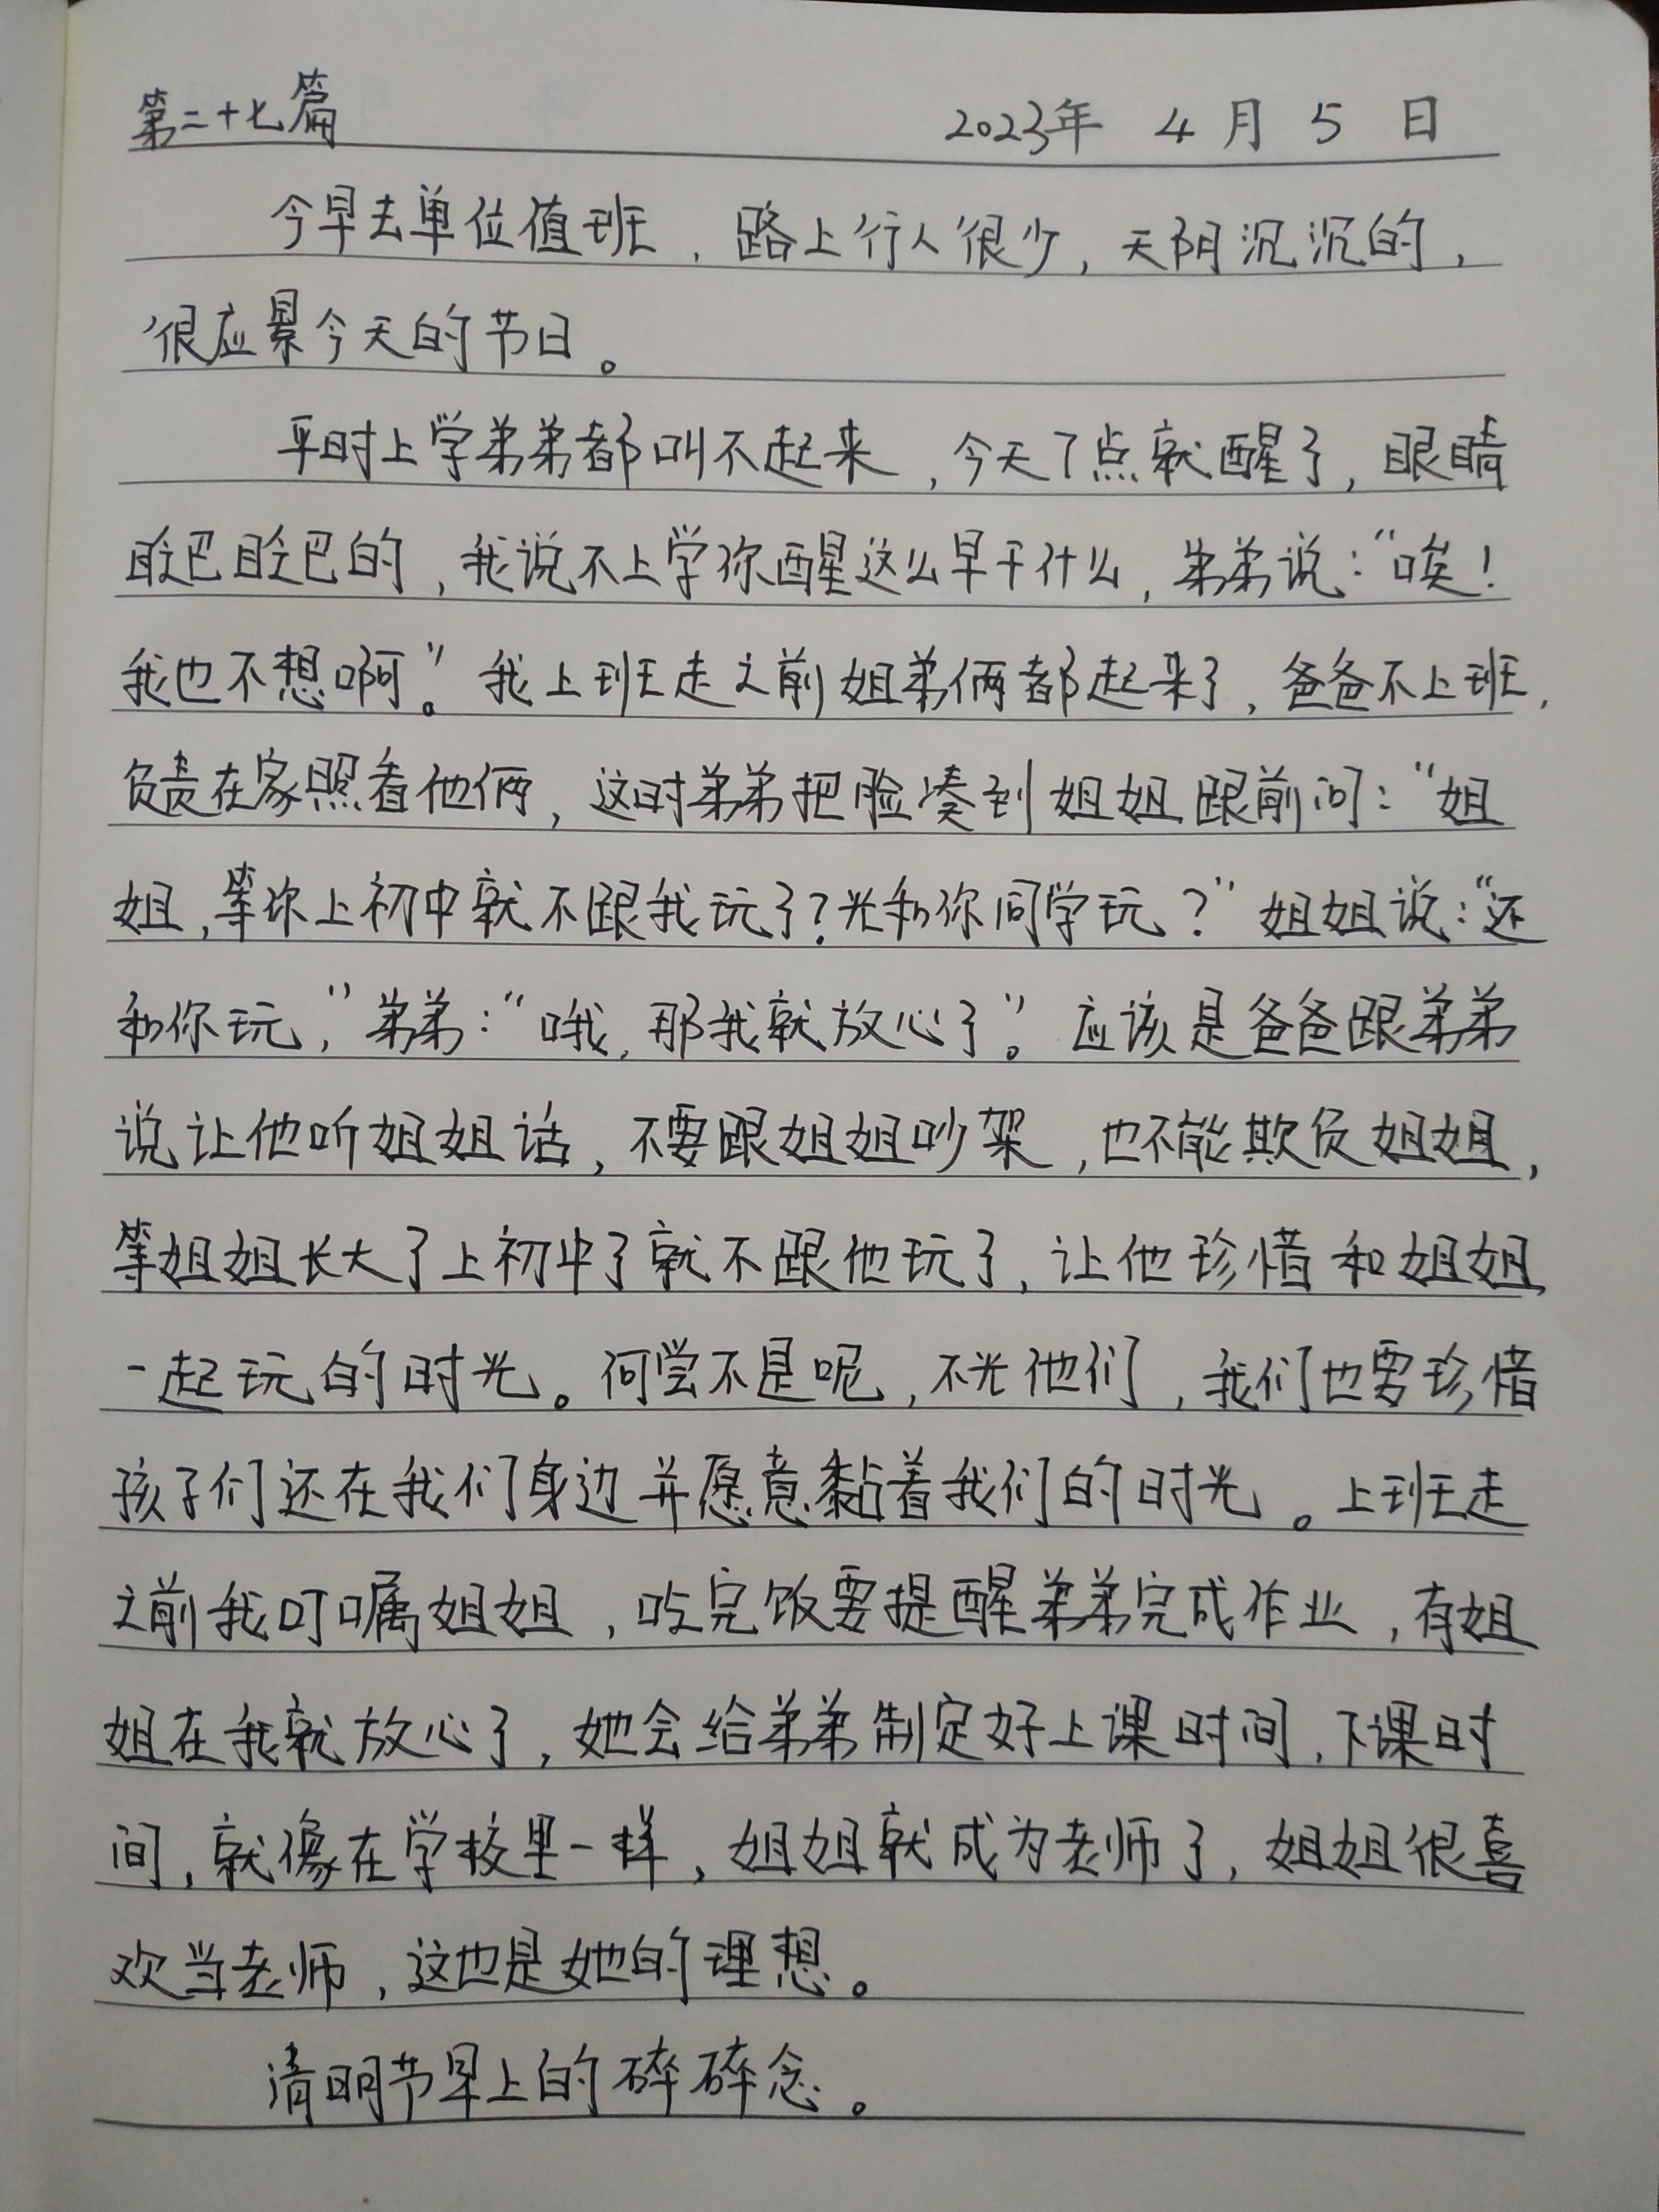 第二十七篇 2023年 4 月 5 日
今早去单位值班，路上行人很少，天阴沉沉的，
很应景今天的节日。
平时上学弟弟都叫不起来，今天7点就醒了，眼睛
眨巴眨巴的，我说不上学你醒这么早干什么，弟弟说：“唉！
我也不想啊。”我上班走之前姐弟俩都起来了，爸爸不上班，
负责在家照看他俩，这时弟弟把脸凑到姐姐跟前问：“姐
姐，等你上初中就不跟我玩了？光和你同学玩？”姐姐说：“还
和你玩，”弟弟：“哦，那我就放心了”。应该是爸爸跟弟弟
说让他听姐姐话，不要跟姐姐吵架，也不能欺负姐姐，
等姐姐长大了上初中了就不跟他玩了，让他珍惜和姐姐，
一起玩的时光。何尝不是呢，不光他们，我们也要珍惜
孩子们还在我们身边并愿意黏着我们的时光。上班走
之前我叮嘱姐姐，吃完饭要提醒弟弟完成作业，有姐
姐在我就放心了，她会给弟弟制定好上课时间，下课时
间，就像在学校里一样，姐姐就成为老师了，姐姐很喜
欢当老师，这也是她的理想。
清明节早上的碎碎念。